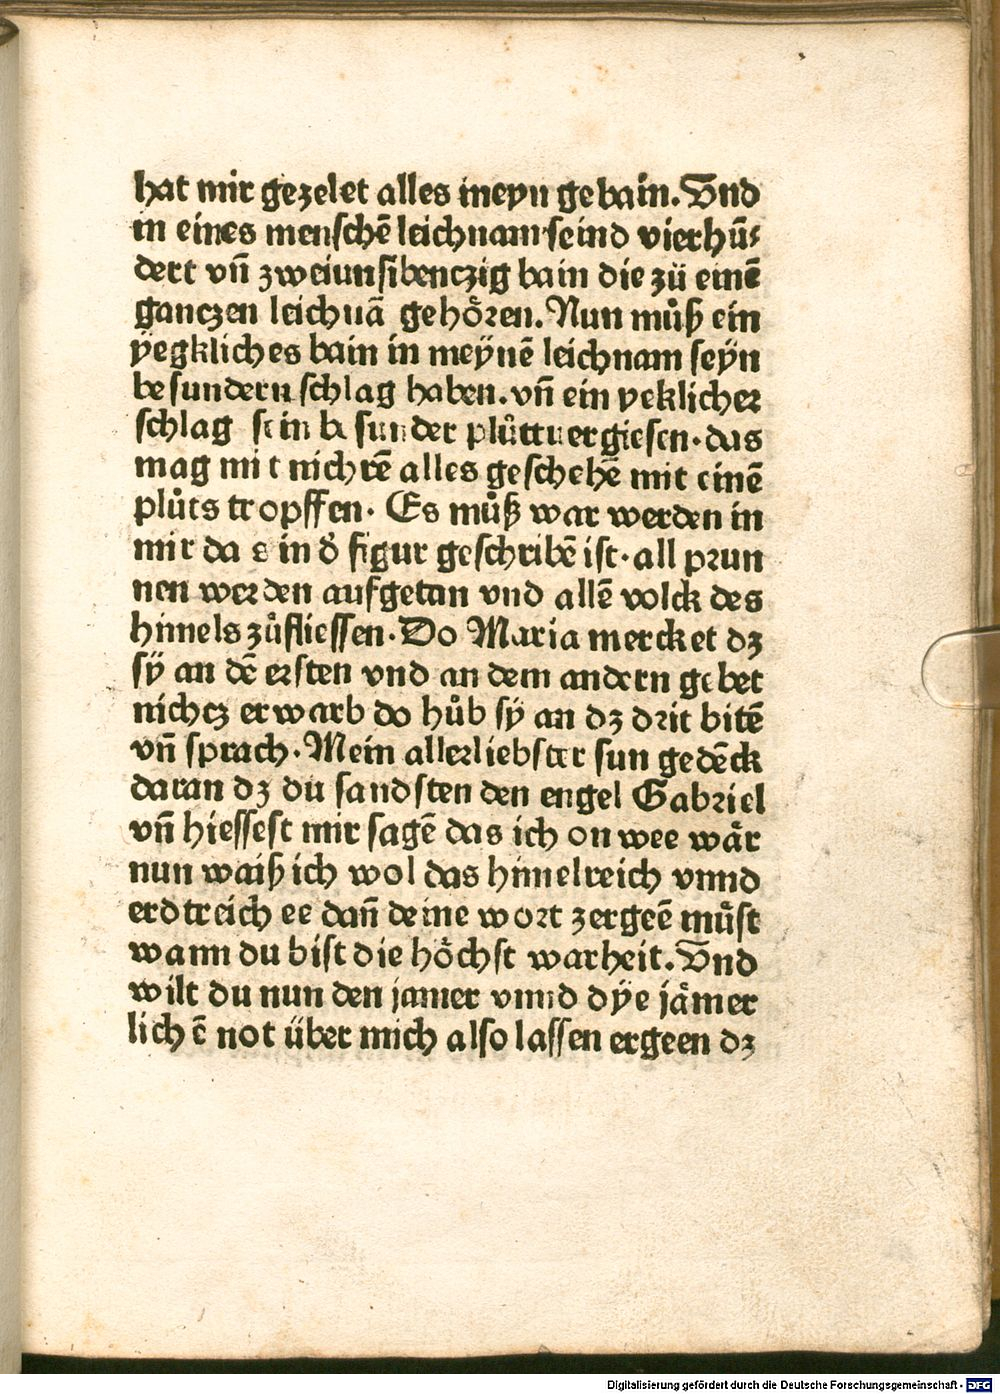 hat mir gezelet alles meyn gebain. Vnd
in eines menschē leichnam seind vierhū⸗
dert vn̄ zweiunsibenczig bain die zü einē
ganczen leichnā gehoͤren. Nun muͦß ein
yegkliches bain in meÿnē leichnam seÿn
besundern schlag haben. vn̄ ein yeklicher
schlag sein besunder pluͦt vergiesen. das
mag mit nichtē alles geschehē mit einē
pluͦts tropffen. Es muͦß war werden in
mir das in d̕ figur geschribē ist. all prun
nen werden aufgetan vnd allē volck des
himels zuͦfliessen. Do Maria mercket dz
sÿ an dē ersten vnd an dem andern gebet
nichcz erwarb do huͦb sÿ an dz drit bitē
vn̄ sprach. Mein allerliebster sun gedēck
daran dz du sandsten den engel Gabriel
vn̄ hiessest mir sagē das ich on wee waͤr
nun waiß ich wol das himelreich vnnd
erdtreich ee dan̄ deine wort zergeē muͤst
wann du bist die hoͤchst warheit. Vnd
wilt du nun den jamer vnnd dÿe jaͤmer
lichē not über mich also lassen ergeen dz
Digitalisierung gefördert durch die Deutsche Forschungsgemeinschaft - DFG